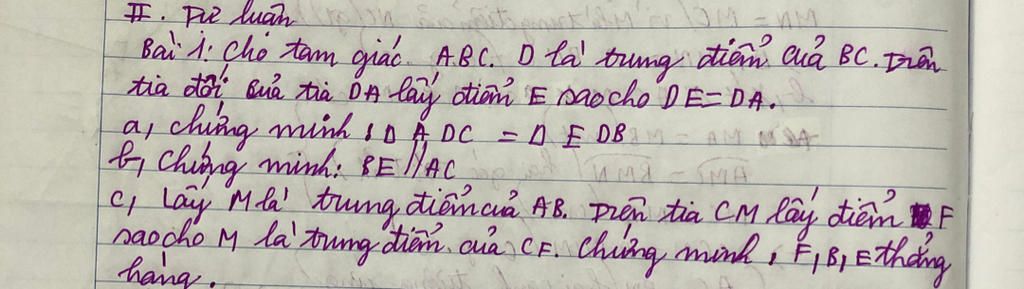 II. Tự luận
Bài 1: Cho tam giác ABC. D là trung điểm của BC. Trên
tia đối của tia DA lấy điểm E sao cho DE = DA.
a, chứng minh: Δ ADC = Δ EDB
b, Chứng minh: BE // AC
c, Lấy M là trung điểm của AB. Trên tia CM lấy điểm F
sao cho M là trung điểm của CF. Chứng minh, F, B, E thẳng
hàng.